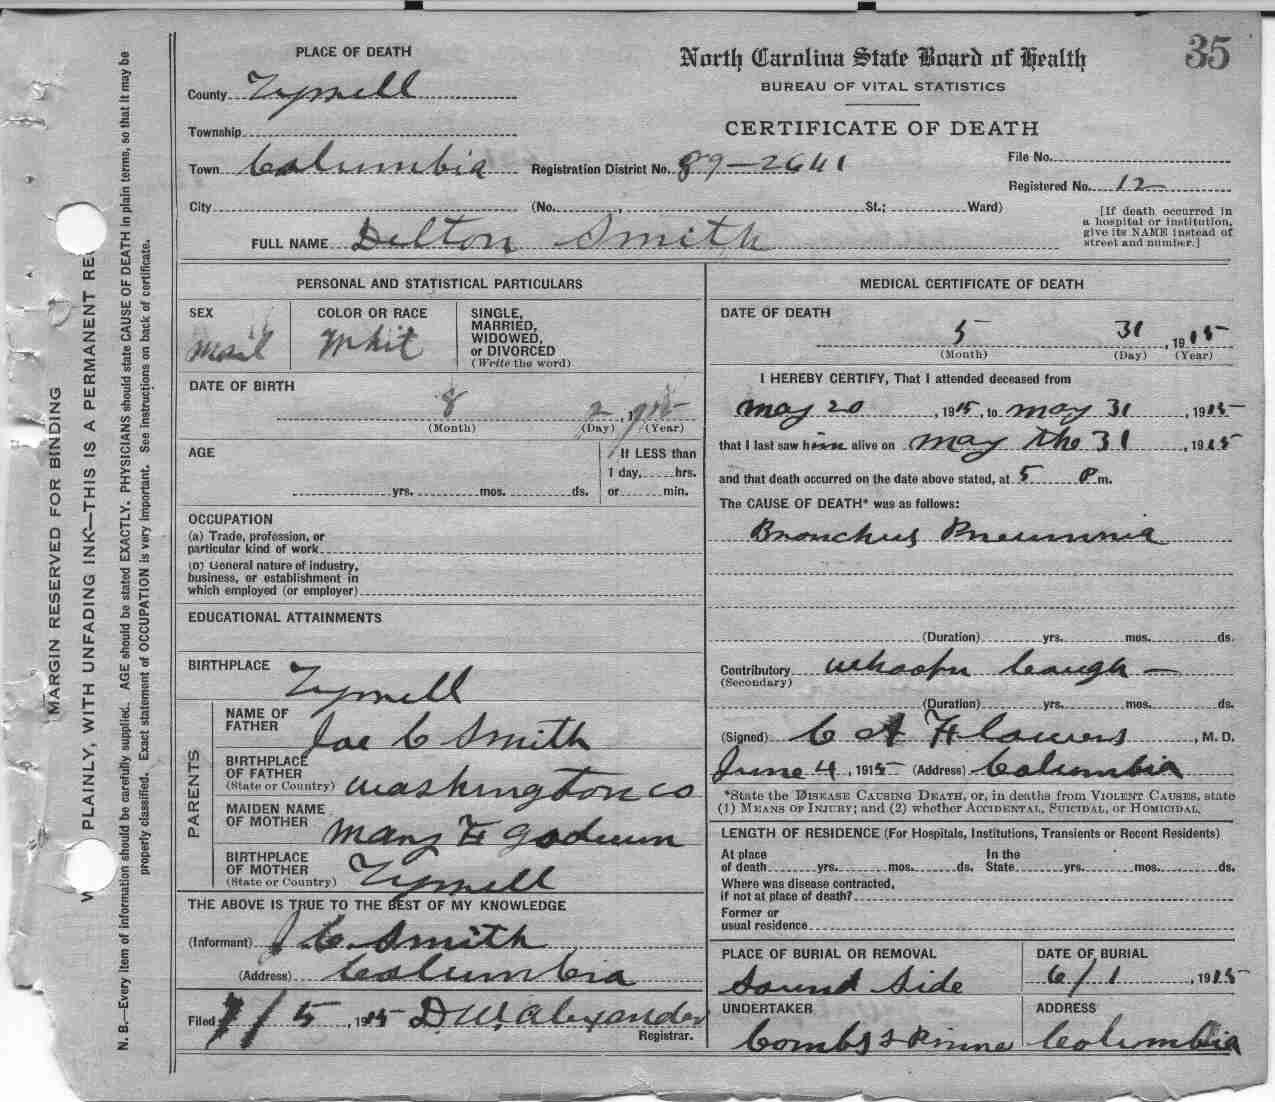 35
North Carolina State Board of Health
BUREAU OF VITAL STATISTICS
CERTIFICATE OF DEATH
PLACE OF DEATH
County Tyrrell
Township
Town Columbia Registration District No. 89-2641
File No.
Registered No. 12
City (No. , St.; Ward)
[If death occurred in
a hospital or institution,
give its NAME instead of
street and number.]
FULL NAME Delton Smith
PERSONAL AND STATISTICAL PARTICULARS
SEX
Mail
COLOR OR RACE
Whit
SINGLE,
MARRIED,
WIDOWED,
or DIVORCED
(Write the word)
DATE OF BIRTH
8 2, 1915
(Month) (Day) (Year)
AGE
yrs. mos. ds.
If LESS than
1 day, hrs.
or min.
OCCUPATION
(a) Trade, profession, or
particular kind of work
(b) General nature of industry,
business, or establishment in
which employed (or employer)
EDUCATIONAL ATTAINMENTS
BIRTHPLACE Tyrrell
PARENTS
NAME OF
FATHER Joe C Smith
BIRTHPLACE
OF FATHER
(State or Country) Washington co
MAIDEN NAME
OF MOTHER Mary F Godwin
BIRTHPLACE
OF MOTHER
(State or Country) Tyrrell
THE ABOVE IS TRUE TO THE BEST OF MY KNOWLEDGE
(Informant) J C Smith
(Address) Columbia
Filed 7/5, 1915 D.W. Alexander
Registrar.
MEDICAL CERTIFICATE OF DEATH
DATE OF DEATH
5 31, 1915
(Month) (Day) (Year)
I HEREBY CERTIFY, That I attended deceased from
may 20, 1915, to may 31, 1915
that I last saw him alive on may the 31, 1915
and that death occurred on the date above stated, at 5 P m.
The CAUSE OF DEATH* was as follows:
Bronchus Pneumnia
(Duration) yrs. mos. ds.
Contributory whoopn Cough -
(Secondary)
(Duration) yrs. mos. ds.
(Signed) C A Flowers, M. D.
June 4, 1915 (Address) Columbia
*State the DISEASE CAUSING DEATH, or, in deaths from VIOLENT CAUSES, state
(1) MEANS OF INJURY; and (2) whether ACCIDENTAL, SUICIDAL, OR HOMICIDAL.
LENGTH OF RESIDENCE (For Hospitals, Institutions, Transients or Recent Residents)
At place In the
of death yrs. mos. ds. State yrs. mos. ds.
Where was disease contracted,
if not at place of death?
Former or
usual residence
PLACE OF BURIAL OR REMOVAL
Sound Side
DATE OF BURIAL
6/1, 1915
UNDERTAKER
Combs &
ADDRESS
Columbia
MARGIN RESERVED FOR BINDING
PLAINLY, WITH UNFADING INK—THIS IS A PERMANENT RE
N. B.—Every item of information should be carefully supplied. AGE should be stated EXACTLY. PHYSICIANS should state CAUSE OF DEATH in plain terms, so that it may be
properly classified. Exact statement of OCCUPATION is very important. See instructions on back of certificate.